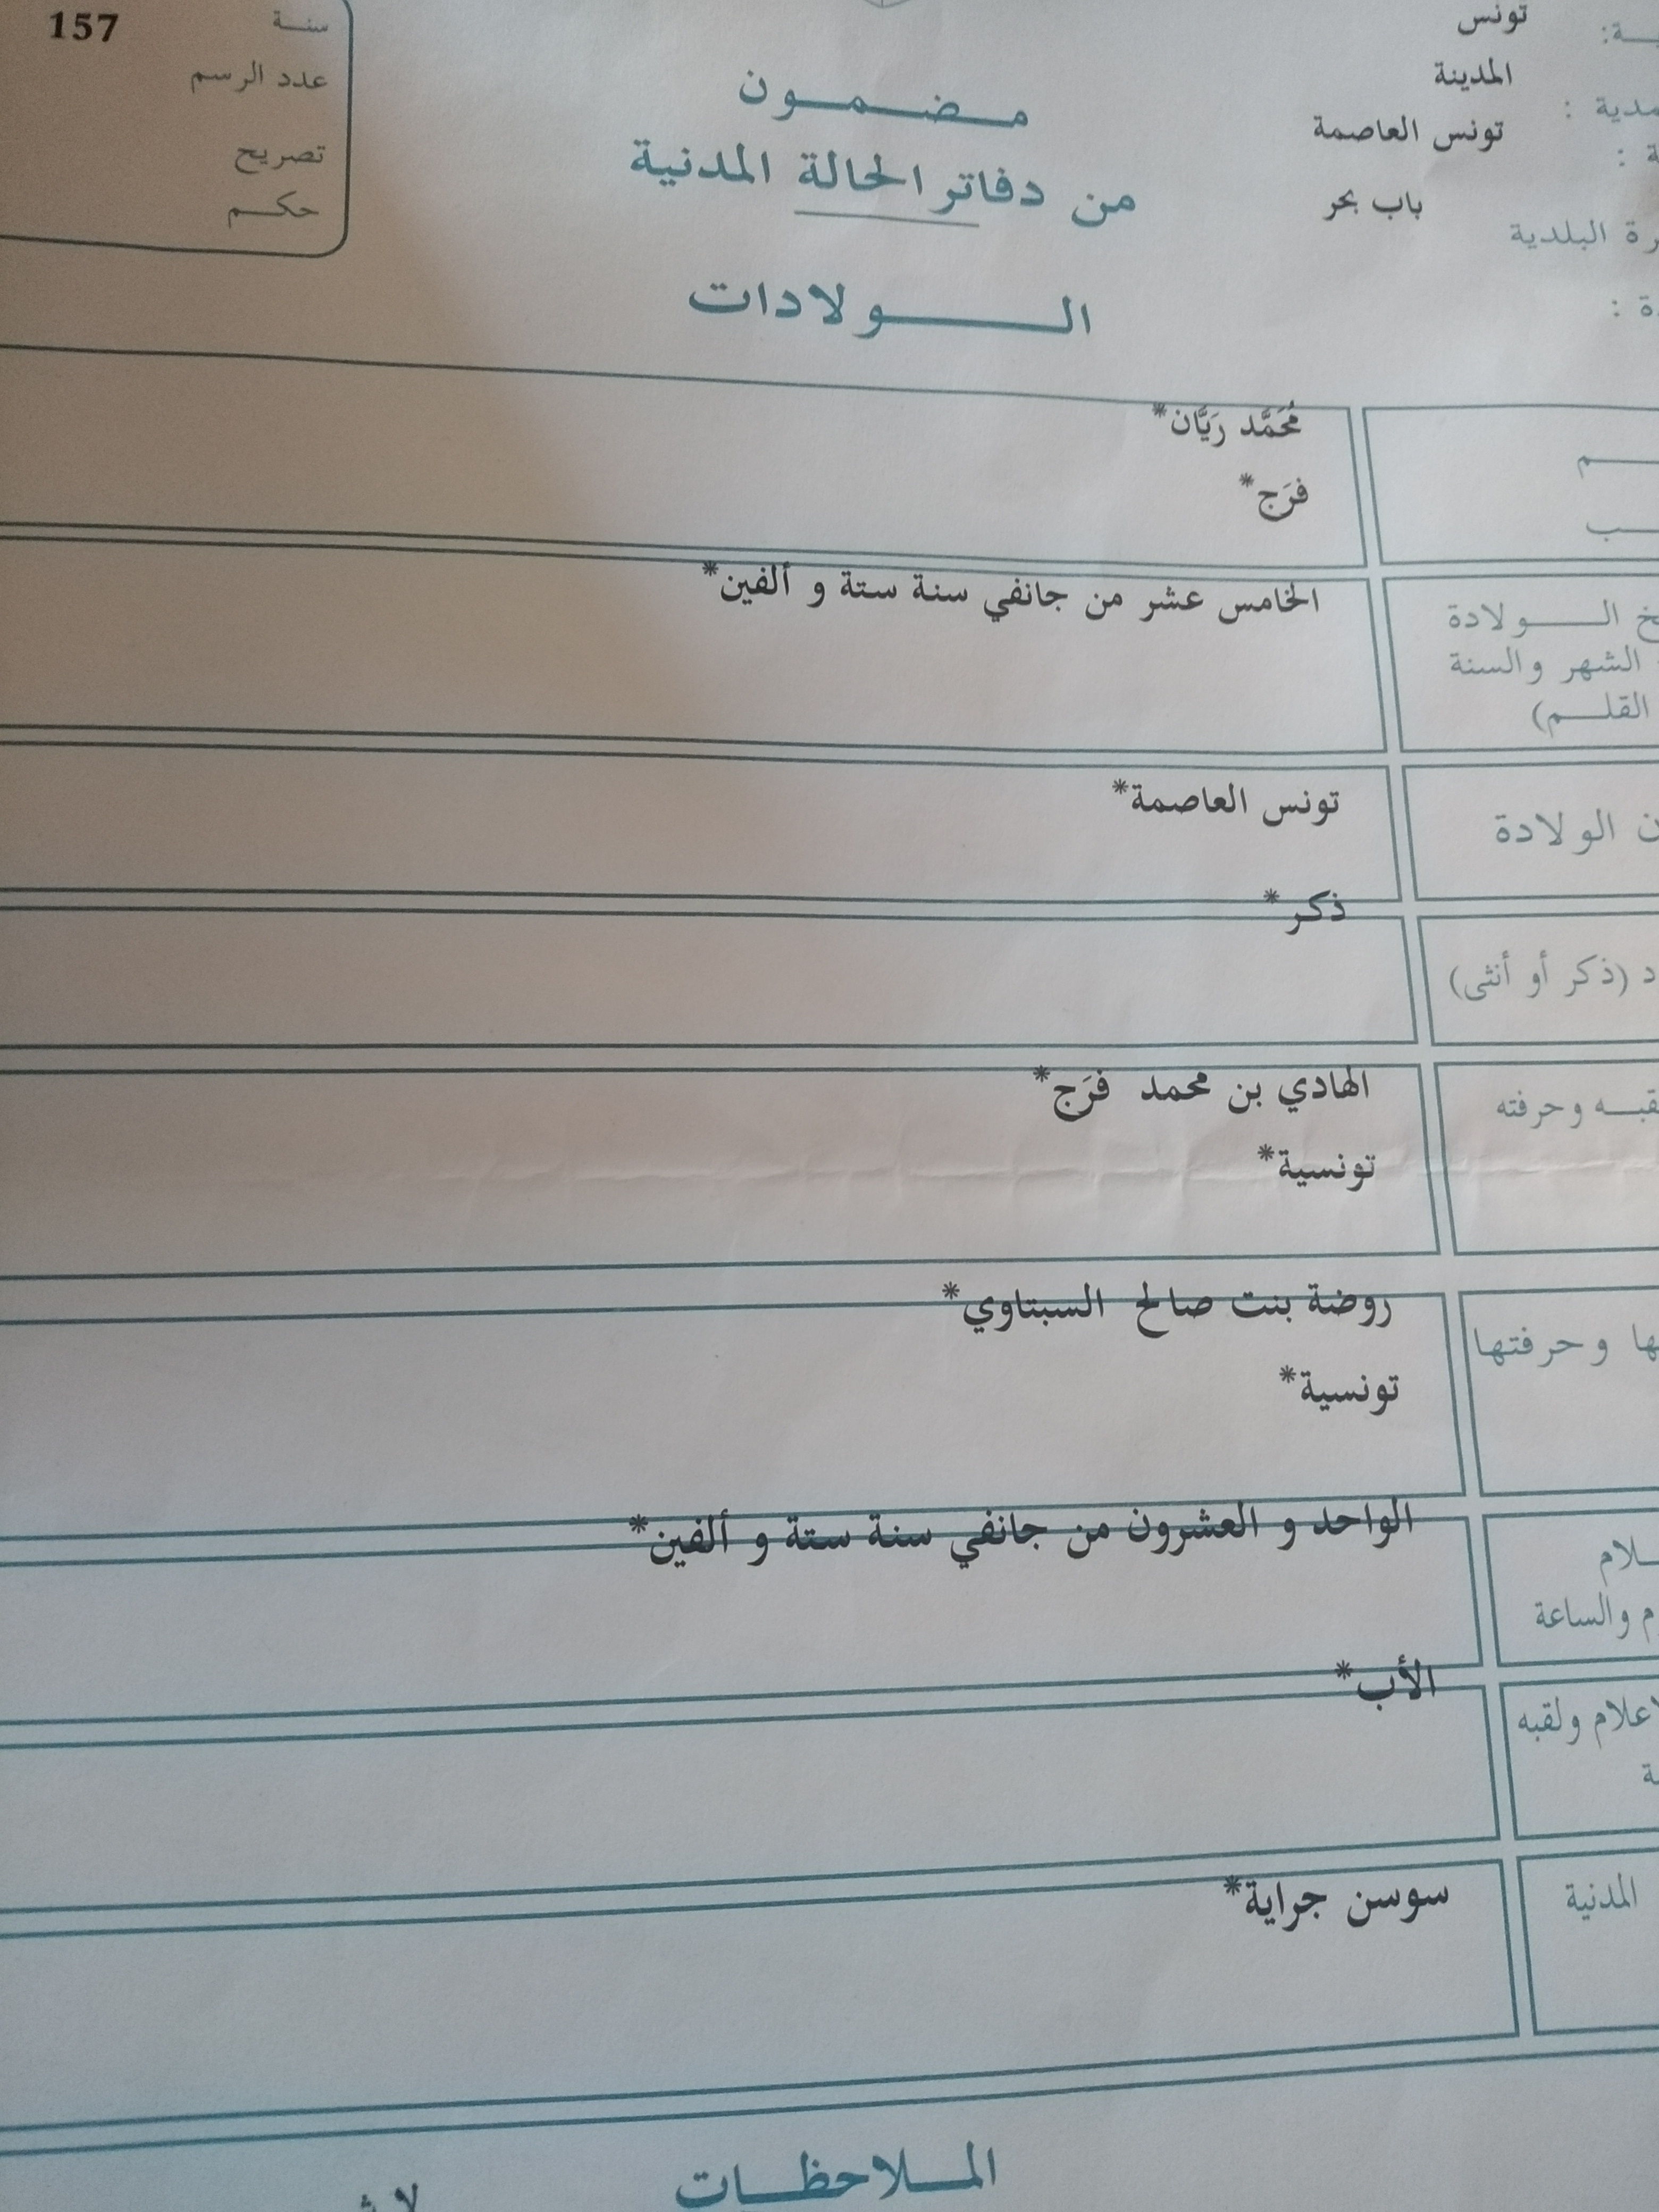 تونس
المدينة
تونس العاصمة
باب بحر
البلدية
مضمون
من دفاتر الحالة المدنية
الولادات
سنة
157
عدد الرسم
تصريح
حكم
مُحَمَّد رَيَّان*
فَرَج*
الولادة
الشهر والسنة
القلم)
الخامس عشر من جانفي سنة ستة و ألفين*
الولادة
تونس العاصمة*
(ذكر أو أنثى)
ذكر*
وحرفته
الهادي بن محمد فَرَج*
تونسية*
وحرفتها
روضة بنت صالح السبتاوي*
تونسية*
والساعة
الواحد و العشرون من جانفي سنة ستة و ألفين*
ولقبه
الأب*
المدنية
سوسن جراية*
الملاحظات